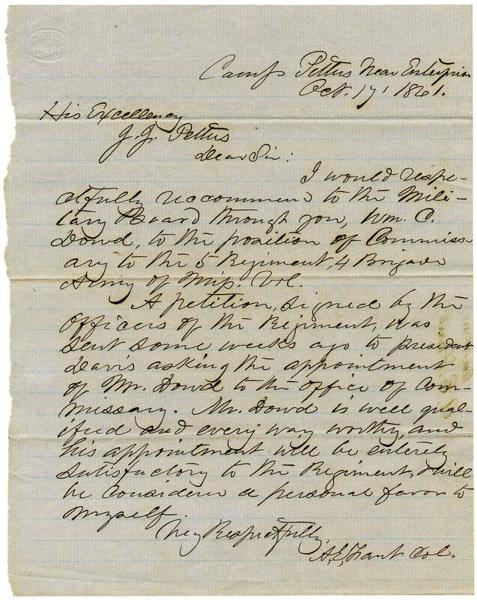 Camp Pettus Near Enterprise
Oct. 17, 1861.
His Excellency
J. J. Pettus
Dear Sir:
I would respe-
ctfully reccommend to the Mili-
tary Board through you, Wm. C.
Dowd, to the position of Commiss-
ary to the 5 Regiment, 4 Brigade
Army of Miss. Vol.
A petition, signed by the
Officers of the Regiment, was
sent some weeks ago to president
Davis asking the appointment
of Mr. Dowd to the office of Com-
missary. Mr. Dowd is well qual-
ified and every way worthy, and
his appointment will be entirely
satisfactory to the Regiment, & will
be considered a personal favor to
myself.
Very Respectfully,
A. E. Fant Col.